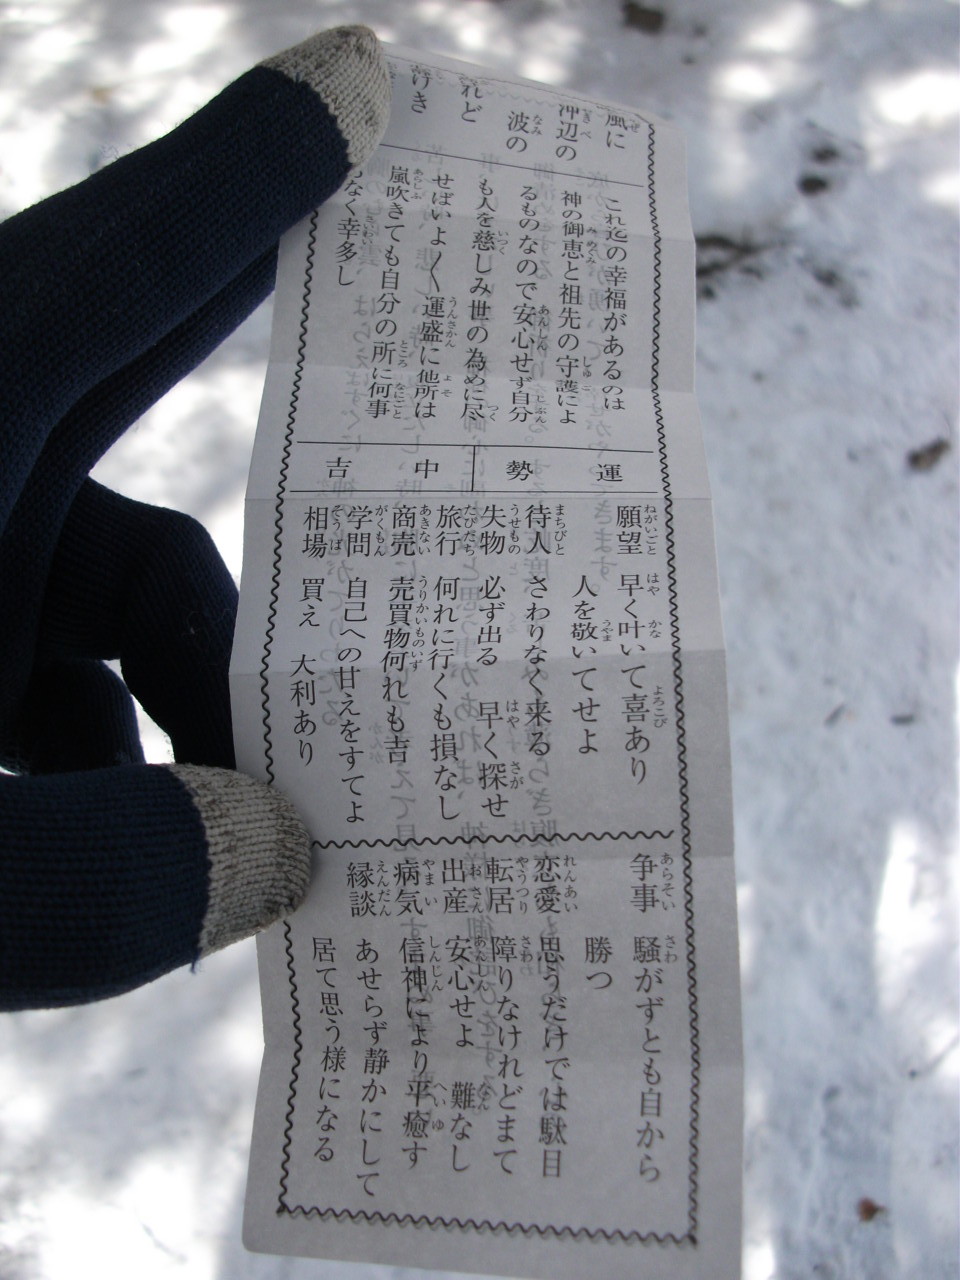 風に
沖辺の
波の
れど
けき
これ迄の幸福があるのは
神の御恵と祖先の守護によ
るものなので安心せず自分
も人を慈しみ世の為めに尽
せばいよ〱運盛に他所は
嵐吹きても自分の所に何事
もなく幸多し
運勢
中吉
願望 早く叶いて喜あり
人を敬いてせよ
待人 さわりなく来る
失物 必ず出る 早く探せ
旅行 何れに行くも損なし
商売 売買物何れも吉
学問 自己への甘えをすてよ
相場 買え 大利あり
争事 騒がずとも自から
勝つ
恋愛 思うだけでは駄目
転居 障りなけれどまて
出産 安心せよ 難なし
病気 信神により平癒す
縁談 あせらず静かにして
居て思う様になる